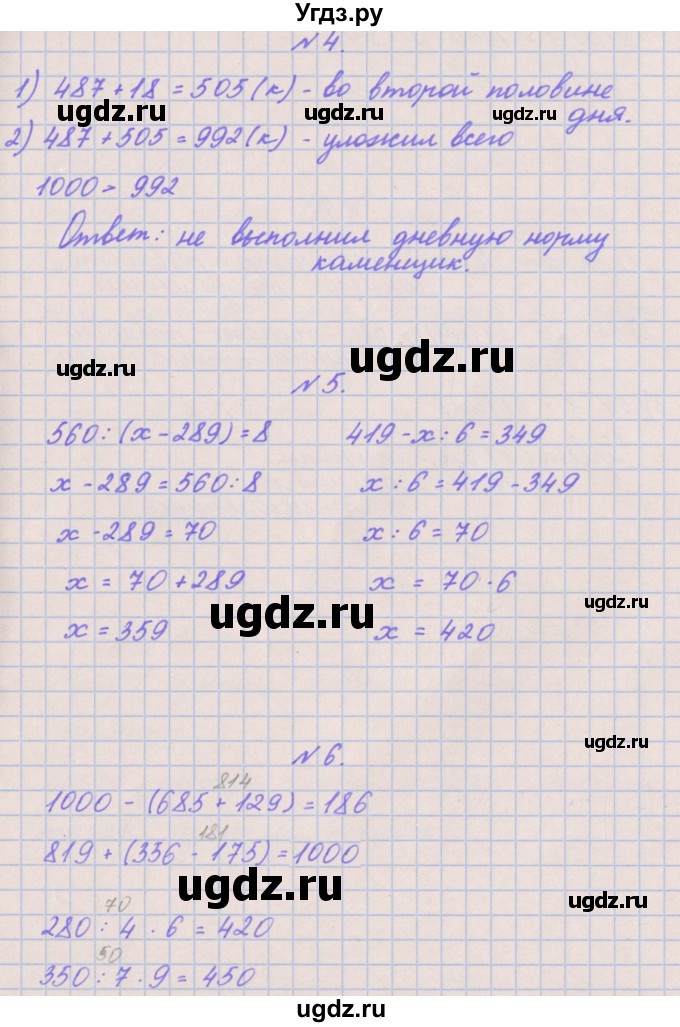 Угдз.ру
N 4.
1) 487 + 18 = 505 (к) - во второй половине
ugdz.ru ugdz.ru дня.
2) 487 + 505 = 992 (к) - уложил всего
1000 > 992
Ответ: не выполнил дневную норму
каменщик.
ugdz.ru ugdz.ru
N 5.
560 : (x - 289) = 8 419 - x : 6 = 349
x - 289 = 560 : 8 x : 6 = 419 - 349
x - 289 = 70 x : 6 = 70
x = 70 + 289 x = 70 · 6
ugdz.ru ugdz.ru
x = 359 x = 420
ugdz.ru
N 6.
814
1000 - (685 + 129) = 186
181
819 + (356 - 175) = 1000
ugdz.ru ugdz.ru
70
280 : 4 · 6 = 420
50
350 : 7 · 9 = 450
ugdz.ru